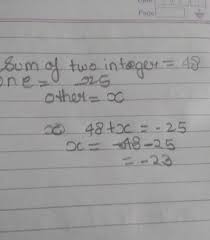 Page
Sum of two integer = 48
one = -25
other = x
48+x = -25
x = -48-25
= -23